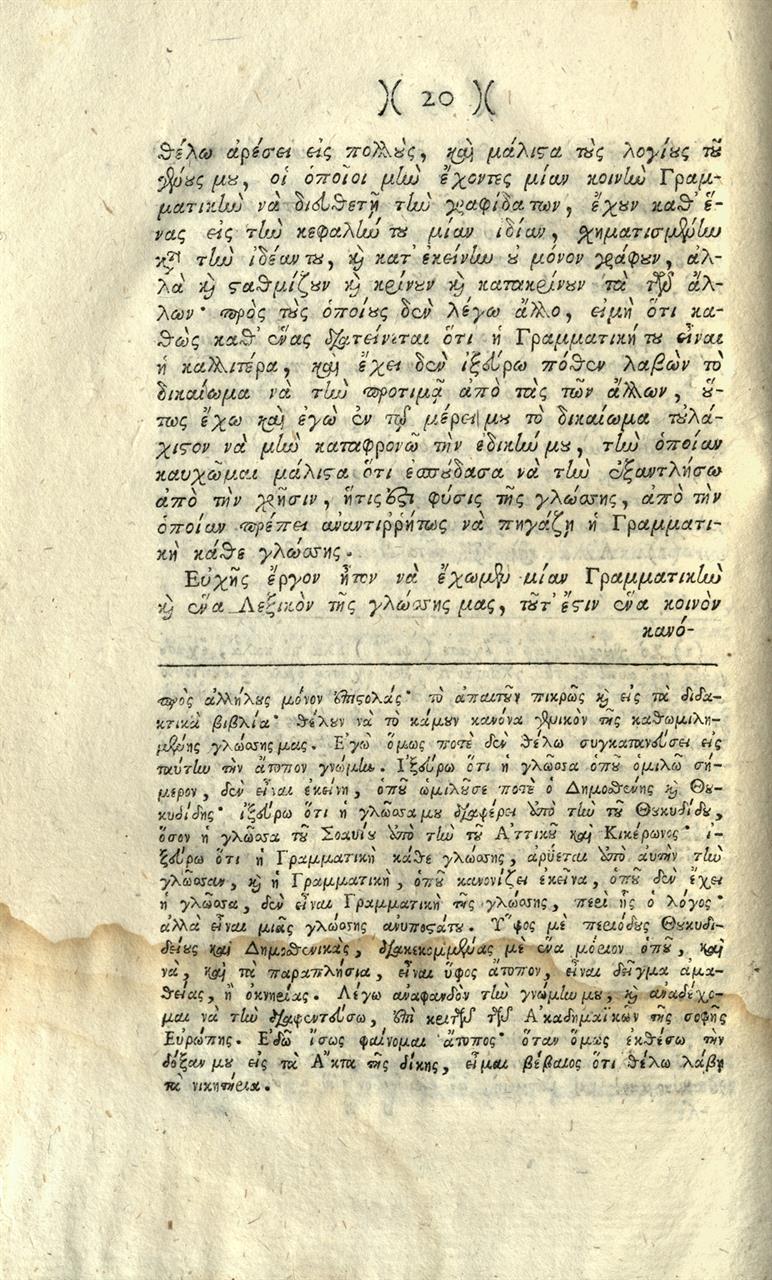 )( 20 )(
θέλω ἀρέσει εἰς πολλοὺς, καὶ μάλιστα τοὺς λογίους τοῦ
γένους μου, οἱ ὁποῖοι μὴν ἔχοντες μίαν κοινὴν Γραμ-
ματικὴν νὰ διευθετῇ τὴν γραφίδα των, ἔχουν καθ᾽ ἕ-
νας εἰς τὴν κεφαλήν του μίαν ἰδίαν, σχηματισμένην
κατὰ τὴν ἰδέαν του, καὶ κατ᾽ ἐκείνην οὐ μόνον γράφουν, ἀλ-
λὰ καὶ σταθμίζουν καὶ κρίνουν καὶ κατακρίνουν τὰ τῶν ἄλ-
λων· πρὸς τοὺς ὁποίους δὲν λέγω ἄλλο, εἰμὴ ὅτι κα-
θὼς καθ᾽ ἕνας διατείνεται ὅτι ἡ Γραμματική του εἶναι
ἡ καλλιτέρα, καὶ ἔχει δὲν ἰξεύρω πόθεν λαβὼν τὸ
δικαίωμα νὰ τὴν προτιμᾷ ἀπὸ τὰς τῶν ἄλλων, οὕ-
τως ἔχω καὶ ἐγὼ ἐν τῷ μέρει μου τὸ δικαίωμα τοὐλά-
χιστον νὰ μὴν καταφρονῶ τὴν ἐδικήν μου, τὴν ὁποίαν
καυχῶμαι μάλιστα ὅτι ἐσπούδασα νὰ τὴν ἐξαντλήσω
ἀπὸ τὴν χρῆσιν, ἥτις ἐστὶ φύσις τῆς γλώσσης, ἀπὸ τὴν
ὁποίαν πρέπει ἀναντιῤῥήτως νὰ πηγάζῃ ἡ Γραμματι-
κὴ κάθε γλώσσης.
Εὐχῆς ἔργον ἦτον νὰ ἔχωμεν μίαν Γραμματικὴν
καὶ ἕνα Λεξικὸν τῆς γλώσσης μας, τοῦτ᾽ ἔστιν ἕνα κοινὸν
κανό-
πρὸς ἀλλήλους μόνον ἐπιστολάς· τὸ ἀπαιτοῦν πικρῶς καὶ εἰς τὰ διδα-
κτικὰ βιβλία· θέλουν νὰ τὸ κάμουν κανόνα γενικὸν τῆς καθωμιλη-
μένης γλώσσης μας. Ἐγὼ ὅμως ποτὲ δὲν θέλω συγκατανεύσει εἰς
ταύτην τὴν ἄτοπον γνώμην. Ἰξεύρω ὅτι ἡ γλῶσσα ὁποῦ ὁμιλῶ σή-
μερον, δὲν εἶναι ἐκείνη, ὁποῦ ὡμιλοῦσε ποτὲ ὁ Δημοσθένης καὶ Θου-
κυδίδης· ἰξεύρω ὅτι ἡ γλῶσσα μου διαφέρει ἀπὸ τὴν τοῦ Θουκυδίδου,
ὅσον ἡ γλῶσσα τοῦ Σοαυίου ἀπὸ τὴν τοῦ Ἀττικοῦ καὶ Κικέρωνος· ἰ-
ξεύρω ὅτι ἡ Γραμματικὴ κάθε γλώσσης, ἀρύεται ἀπὸ αὐτὴν τὴν
γλῶσσαν, καὶ ἡ Γραμματικὴ, ὁποῦ κανονίζει ἐκεῖνα, ὁποῦ δὲν ἔχει
ἡ γλῶσσα, δὲν εἶναι Γραμματικὴ τῆς γλώσσης, περὶ ἧς ὁ λόγος·
ἀλλὰ εἶναι μιᾶς γλώσσης ἀνυποστάτου. Ὕφος μὲ περιόδους Θουκυδι-
δείους καὶ Δημοσθενικὰς, διακεκομμένας μὲ ἕνα μόριον ὁποῦ, καὶ
νὰ, καὶ τὰ παραπλήσια, εἶναι ὕφος ἄτοπον, εἶναι δεῖγμα ἀμα-
θείας, ἢ ὀκνηρίας. Λέγω ἀναφανδὸν τὴν γνώμην μου, καὶ ἀναδέχο-
μαι νὰ τὴν διαφεντεύσω, ἐπὶ κριτῶν τῶν Ἀκαδημαϊκῶν τῆς σοφῆς
Εὐρώπης. Ἐδῶ ἴσως φαίνομαι ἄτοπος· ὅταν ὅμως ἐκθέσω τὴν
δόξαν μου εἰς τὰ Ἄκτα τῆς δίκης, εἶμαι βέβαιος ὅτι θέλω λάβῃ
τὰ νικητήρια.